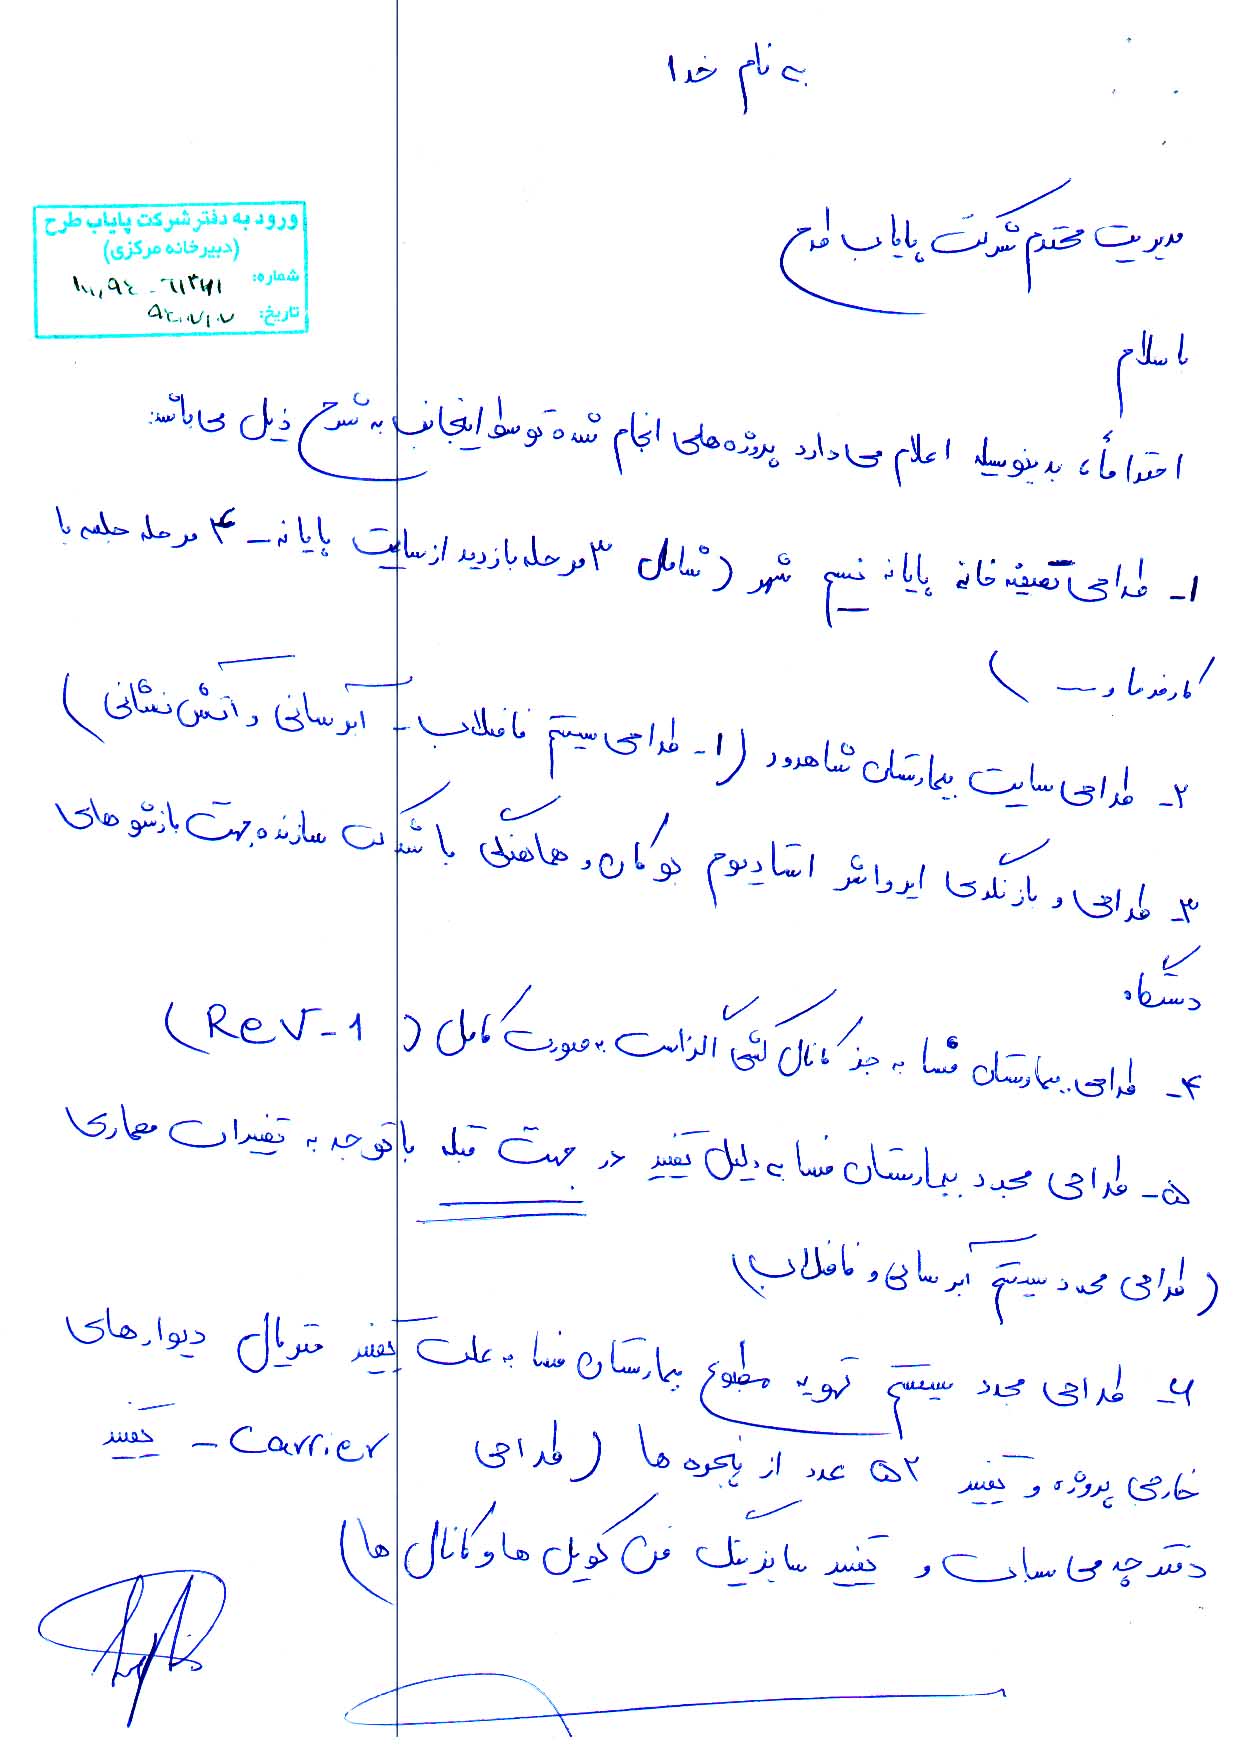 به نام خدا
ورود به دفتر شرکت پایاب طرح
(دبیرخانه مرکزی)
شماره:
تاریخ: ۹۴،۰۷،۰۷
مدیریت محترم شرکت پایاب طرح
با سلام
احتراماً، بدینوسیله اعلام می دارد پروژه های انجام شده توسط اینجانب به شرح ذیل می باشد:
۱- طراحی تصفیه خانه پایانه نسیم شهر (شامل ۳ مرحله بازدید از سایت پایانه - ۴ مرحله جلسه با
کارفرما و ... )
۲- طراحی سایت بیمارستان شاهرود (۱- طراحی سیستم فاضلاب - آبرسانی و آتش نشانی)
۳- طراحی و بازنگری ایرواشر استادیوم بوکان و هماهنگی با شرکت سازنده جهت بازشوهای
دستگاه
۴- طراحی بیمارستان فسا به جز کانال کشی اگزاست به صورت کامل (Rev-1)
۵- طراحی مجدد بیمارستان فسا به دلیل تغییر در جهت قبله با توجه به تغییرات معماری
(طراحی مجدد سیستم آبرسانی و فاضلاب)
۶- طراحی مجدد سیستم تهویه مطبوع بیمارستان فسا به علت تغییر متریال دیوارهای
خارجی پروژه و تغییر ۵۲ عدد از پنجره ها (طراحی Carrier - تغییر
دفترچه محاسبات و تغییر سایزینگ فن کویل ها و کانال ها)